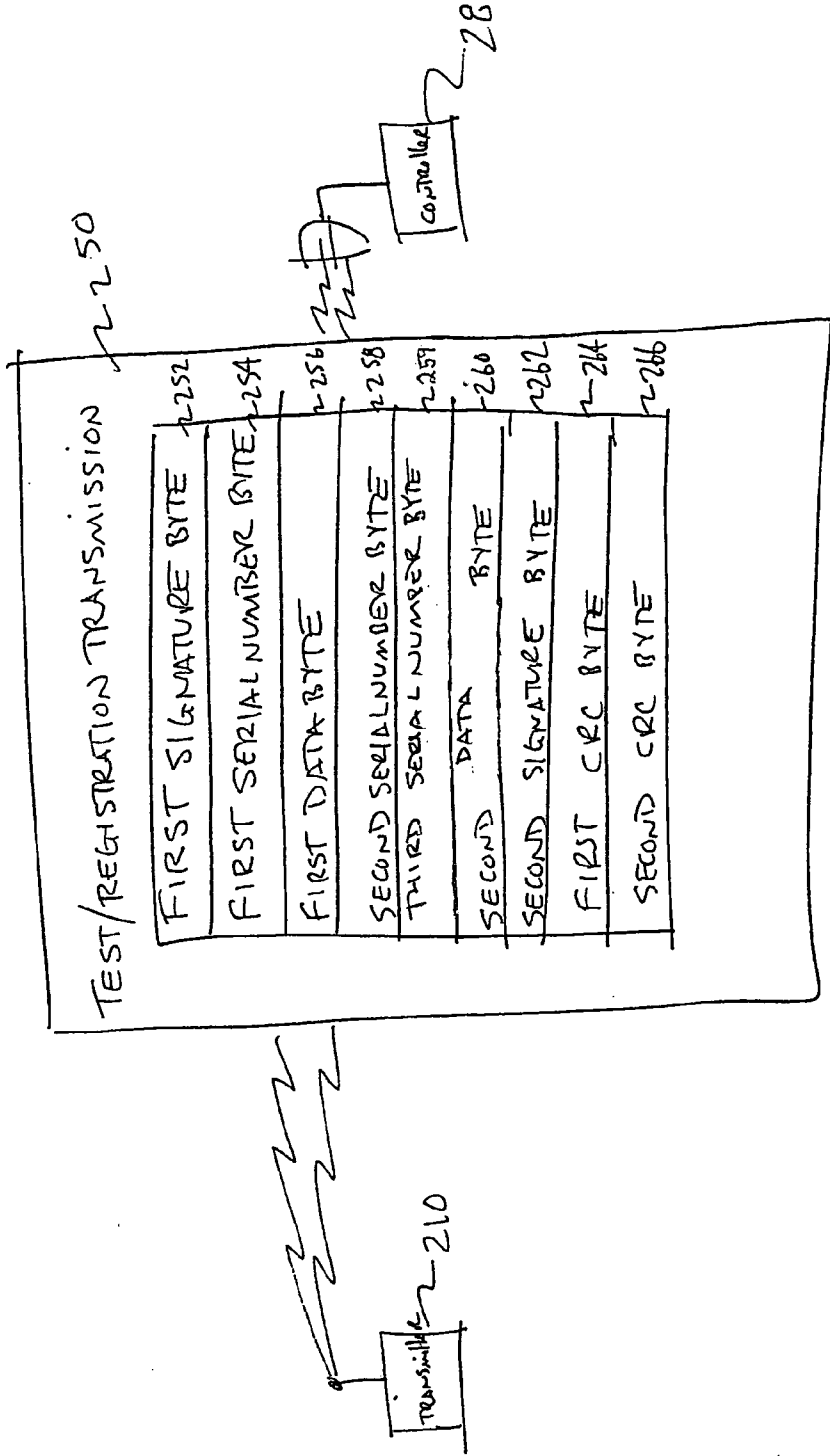 TEST/REGISTRATION TRANSMISSION
250
FIRST SIGNATURE BYTE 252
FIRST SERIAL NUMBER BYTE 254
FIRST DATA BYTE 256
SECOND SERIAL NUMBER BYTE 258
THIRD SERIAL NUMBER BYTE 259
SECOND DATA BYTE 260
SECOND SIGNATURE BYTE 262
FIRST CRC BYTE 264
SECOND CRC BYTE 266
TRANSMITTER 210
CONTROLLER 28